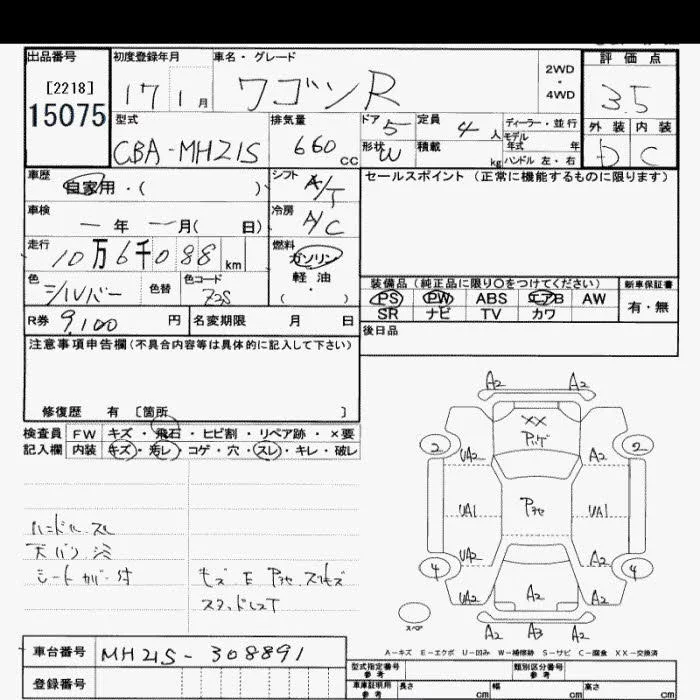 出品番号 初度登録年月 車名・グレード 評価点
[2218]
15075
17 1月 ワゴンR 2WD・4WD 3.5
型式 排気量 ドア 5 定員 4人 ディーラー・並行 外装 内装
CBA-MH21S 660cc 形状 W 積載 kg モデル年式 年 D C
ハンドル 左・右
車歴 シフト セールスポイント(正常に機能するものに限ります)
自家用・( ) A/T
車検 冷房
一年 一月( 日) A/C
走行 燃料
10万6千088km ガソリン
色 色替 色コード 軽油
シルバー Z2S ・( )
装備品(純正品に限り○をつけてください) 新車保証書
PS PW ABS エアB AW 有・無
SR ナビ TV カワ
R券 9,100円 名変期限 月 日
後日品
注意事項申告欄(不具合内容等は具体的に記入して下さい)
修復歴 有 [箇所 ]
検査員 FW キズ・飛石・ヒビ割・リペア跡・×要
記入欄 内装 キズ・汚レ・コゲ・穴・スレ・キレ・破レ
A2 A2
XX
2 2
UA2 A2
UA1 UA1
UA2 A2
4 4
UA2 A2 A2
A2 A3 A2
スペア
ハンドル スレ
シートカバー付
A-キズ E-エクボ U-凹み W-補修跡 S-サビ C-腐食 XX-交換済
車台番号 MH21S-308891
登録番号
型式指定番号 参考 類別区分番号 参考
車庫証明用 参考 長さ cm 幅 cm 高さ cm